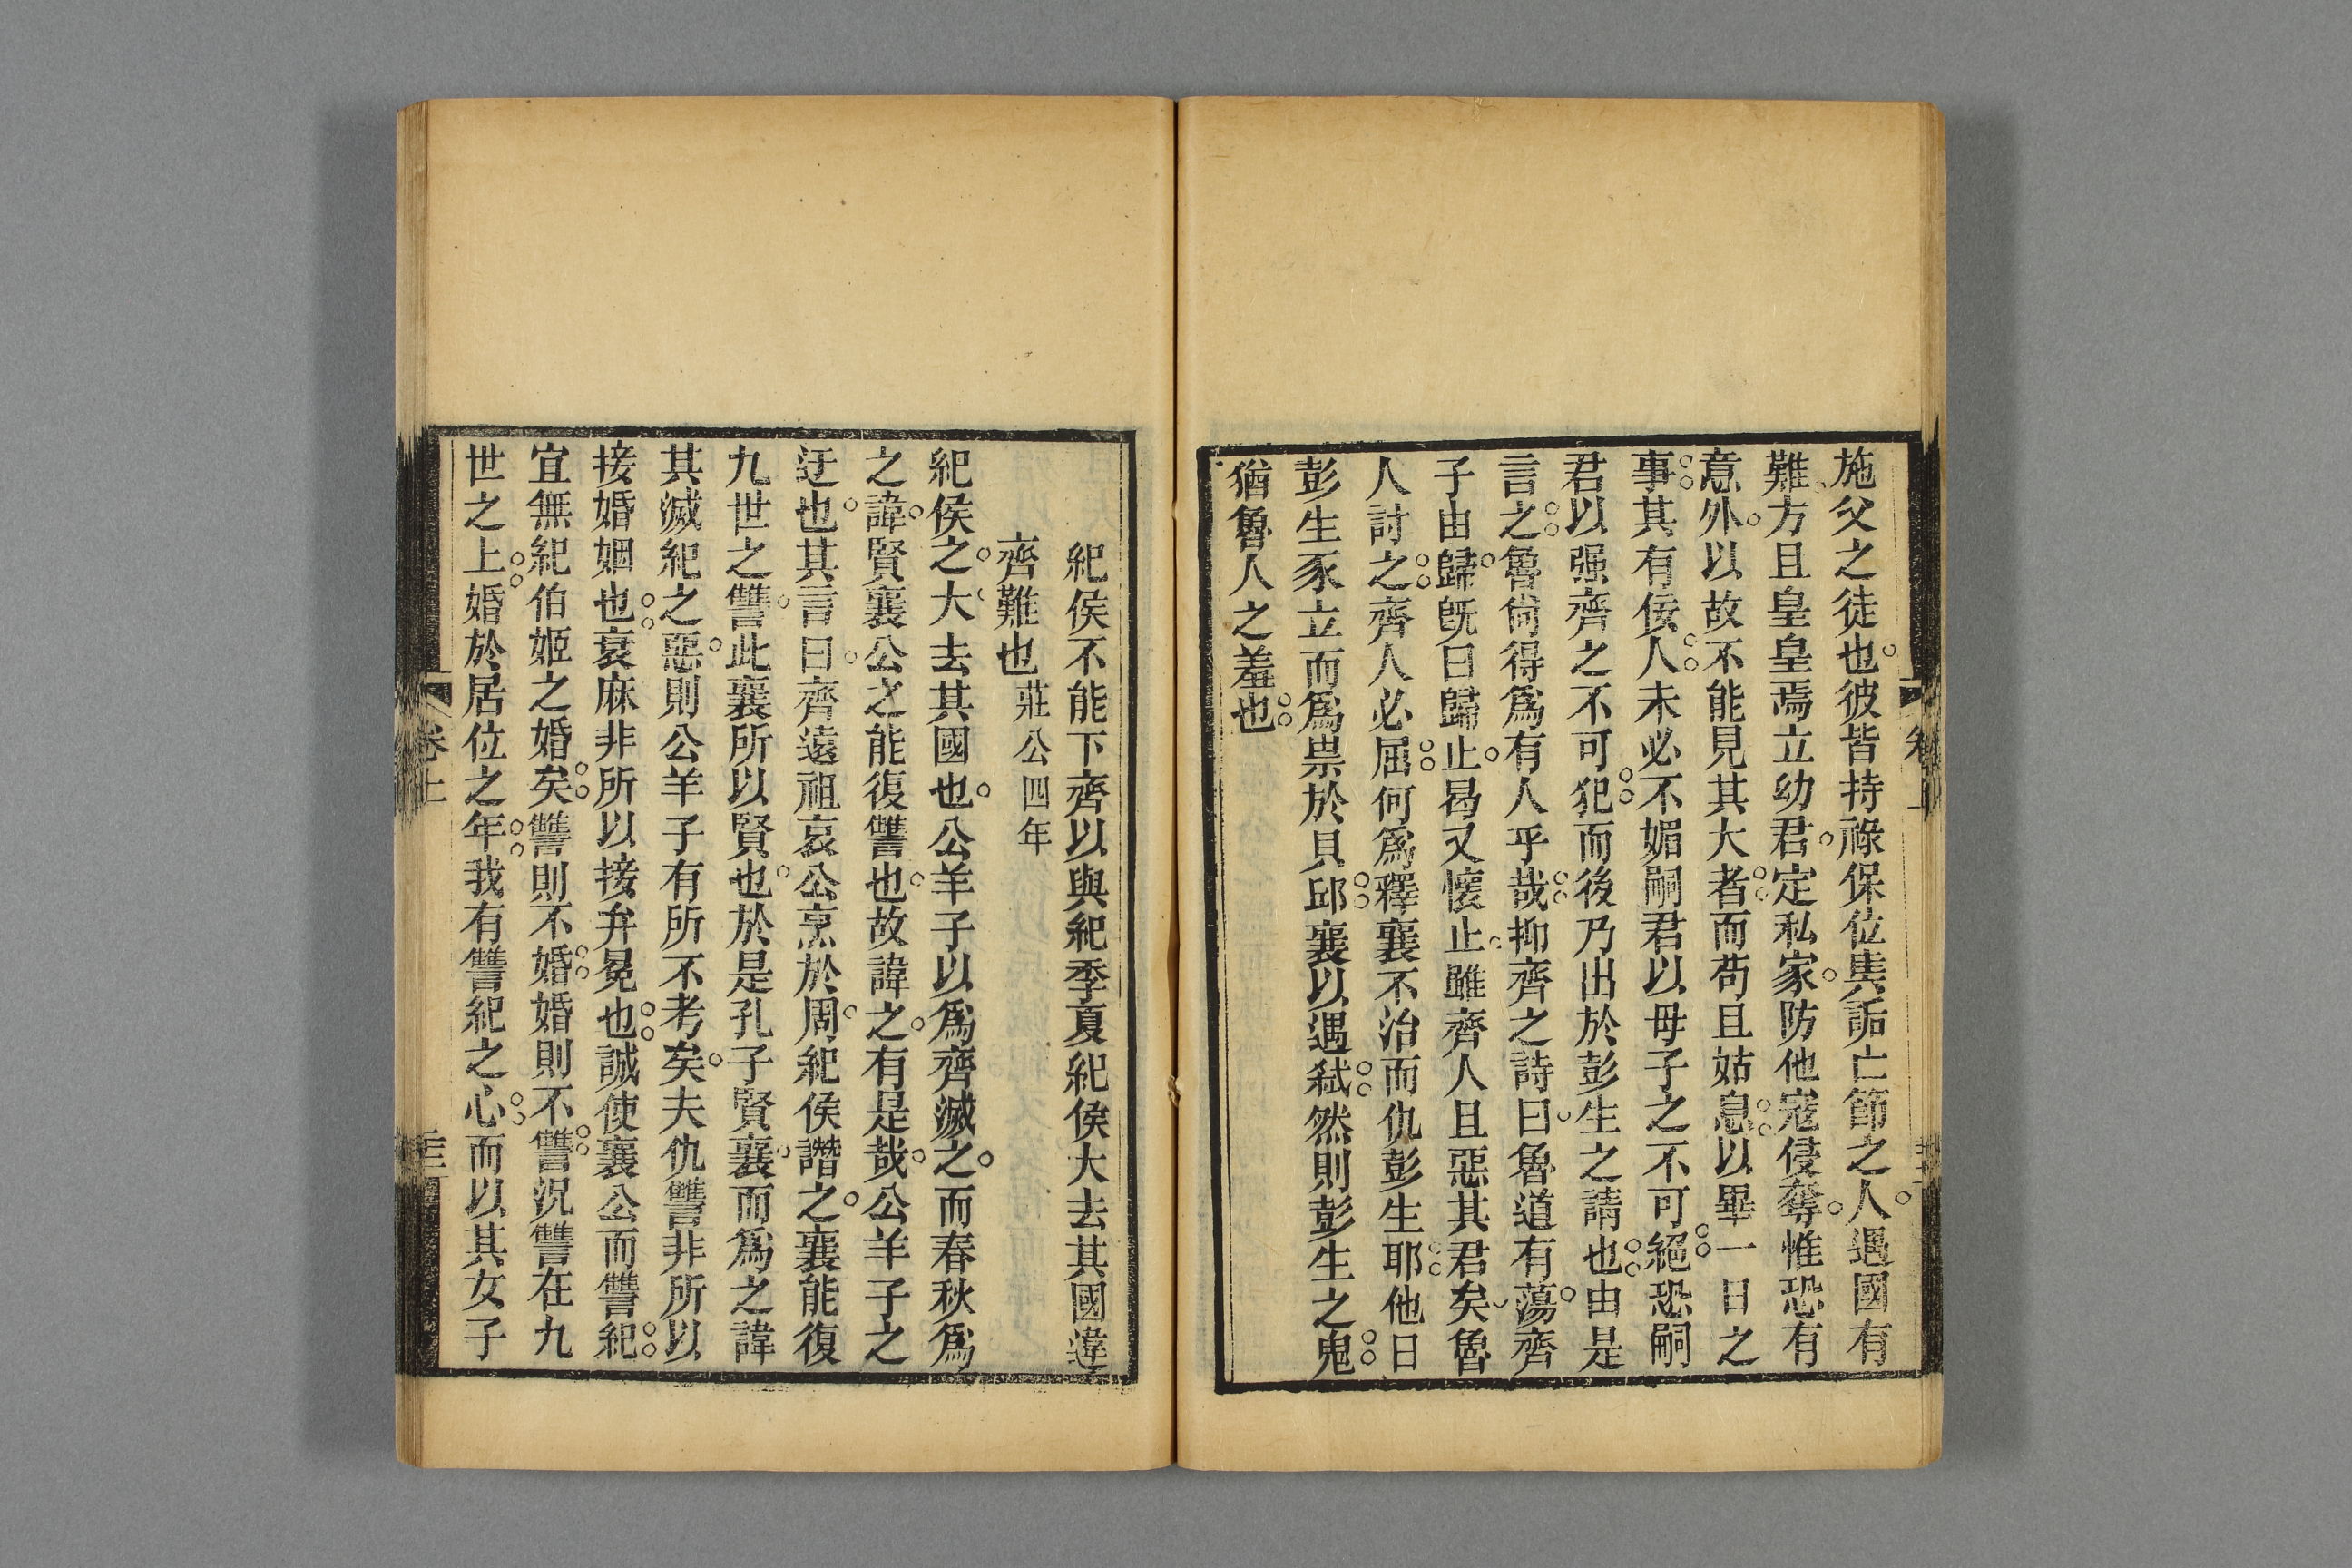 施父之徒也彼皆持祿保位㖌詬亡節之人遇國有
難方且皇皇焉立幼君定私家防他寇侵奪惟恐有
意外以故不能見其大者而苟且姑息以畢一日之
事其有佞人未必不媚嗣君以母子之不可絕恐嗣
君以强齊之不可犯而後乃出於彭生之請也由是
言之魯尙得爲有人乎哉抑齊之詩曰魯道有蕩齊
子由歸旣曰歸止曷又懷止雖齊人且惡其君矣魯
人討之齊人必屈何爲釋襄不治而仇彭生耶他日
彭生豕立而爲祟於貝邱襄以遇弑然則彭生之鬼
猶魯人之羞也
紀侯不能下齊以與紀季夏紀侯大去其國違
齊難也莊公四年
紀侯之大去其國也公羊子以爲齊滅之而春秋爲
之諱賢襄公之能復讐也故諱之有是哉公羊子之
迂也其言曰齊遠祖哀公烹於周紀侯譖之襄能復
九世之讐此襄所以賢也於是孔子賢襄而爲之諱
其滅紀之惡則公羊子有所不考矣夫仇讐非所以
接婚姻也衰麻非所以接弁冕也誠使襄公而讐紀
宜無紀伯姬之婚矣讐則不婚婚則不讐況讐在九
世之上婚於居位之年我有讐紀之心而以其女子
卷上